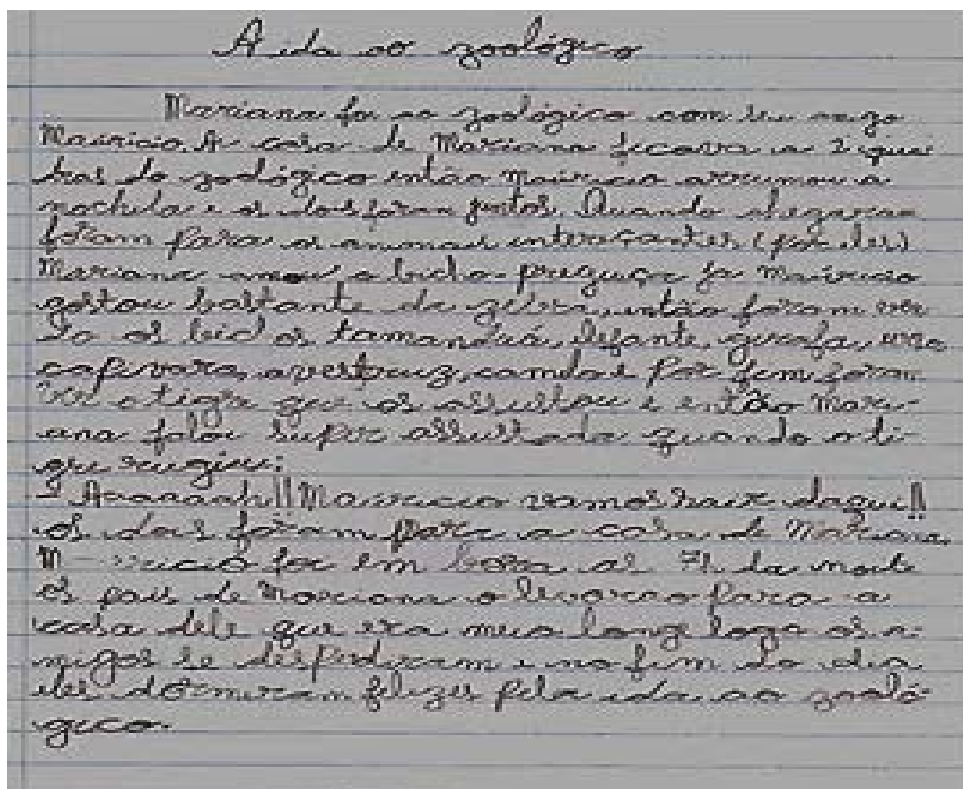 A ida ao zoológico
Mariana foi ao zoológico com seu
Mauricio. A casa de Mariana ficava a
do zoológico então Mauricio arrumou a
mochila e os dois foram juntos. Quando chegaram
foram para os animais (por eles)
Mariana amou o bicho preguiça já Mauricio
gostou bastante da zebra, então foram
os tamanduá, girafa,
capivara, avestruz, e por fim foram
ver o tigre que os assustou e então Mari-
ana falou super assustada quando o ti-
gre rugiu:
- Aaaaaah!! Mauricio vamos sair daqui!!
os dois foram para a casa de Mariana,
foi em bora as 7h da noite
os pais de Mariana o para a
casa dele que era longe logo os a-
migos se e no fim do dia
eles dormiram felizes pela ida ao zooló-
gico.